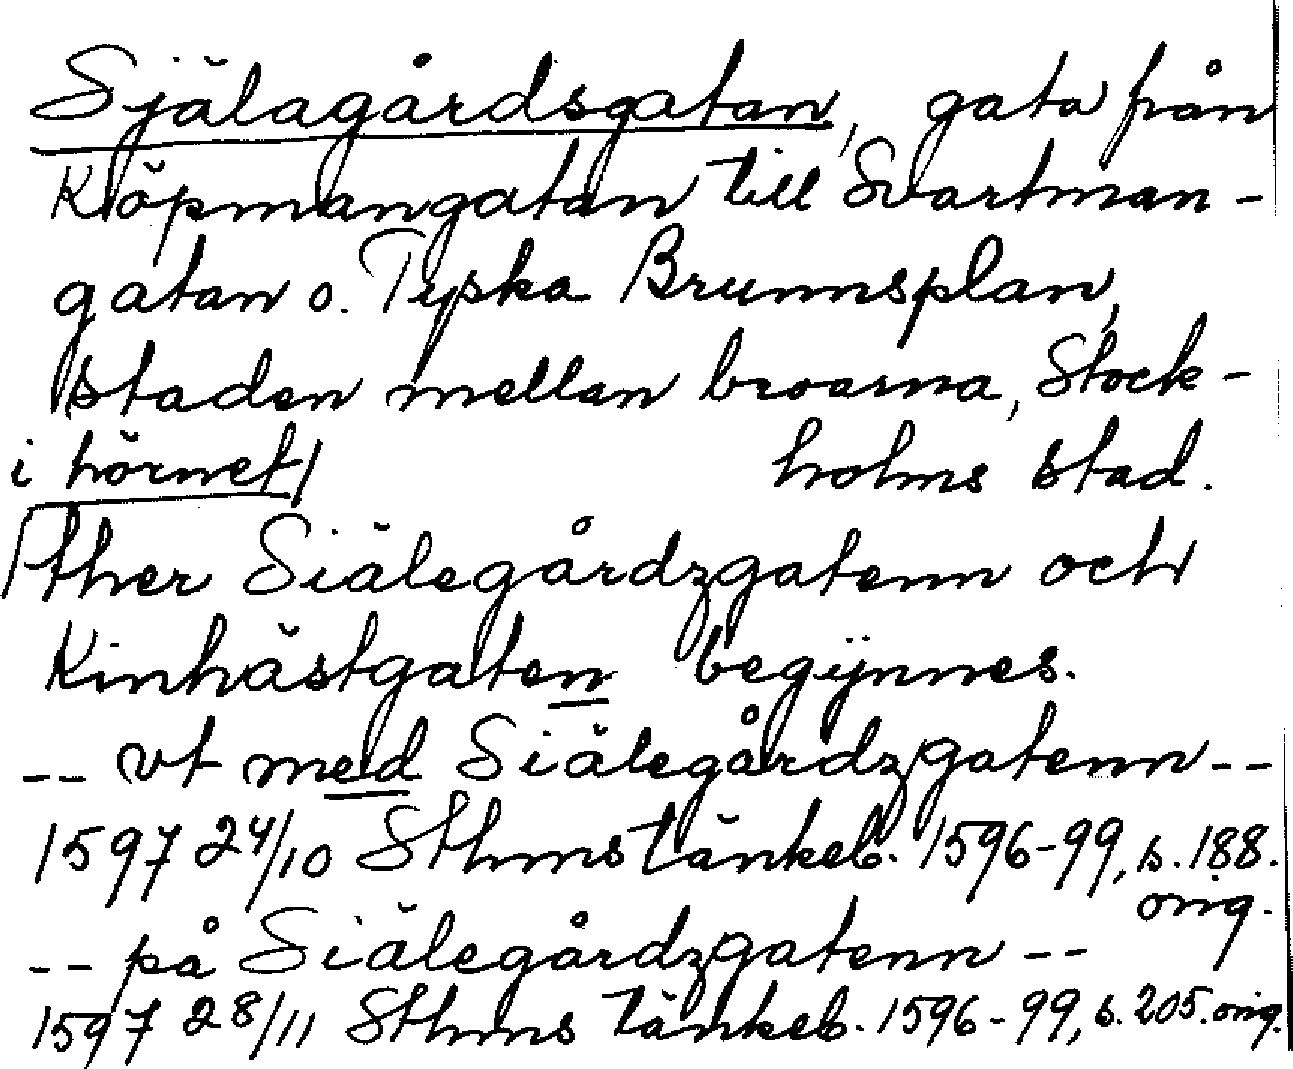 Själagårdsgatan, gata från
Köpmangatan till Svartman-
gatan o. Tyska Brunnsplan,
staden mellan broarna, Stock-
holms stad.
i hörnet/
/ther Siälegårdzgatenn och
Kinhästgaten begÿnnes.
-- vt med Siälegårdzgatenn --
1597 24/10 Sthms tänkeb. 1596-99, s. 188.
orig.
-- på Siälegårdzgatenn --
1597 28/11 Sthms tänkeb. 1596-99, s. 205. orig.